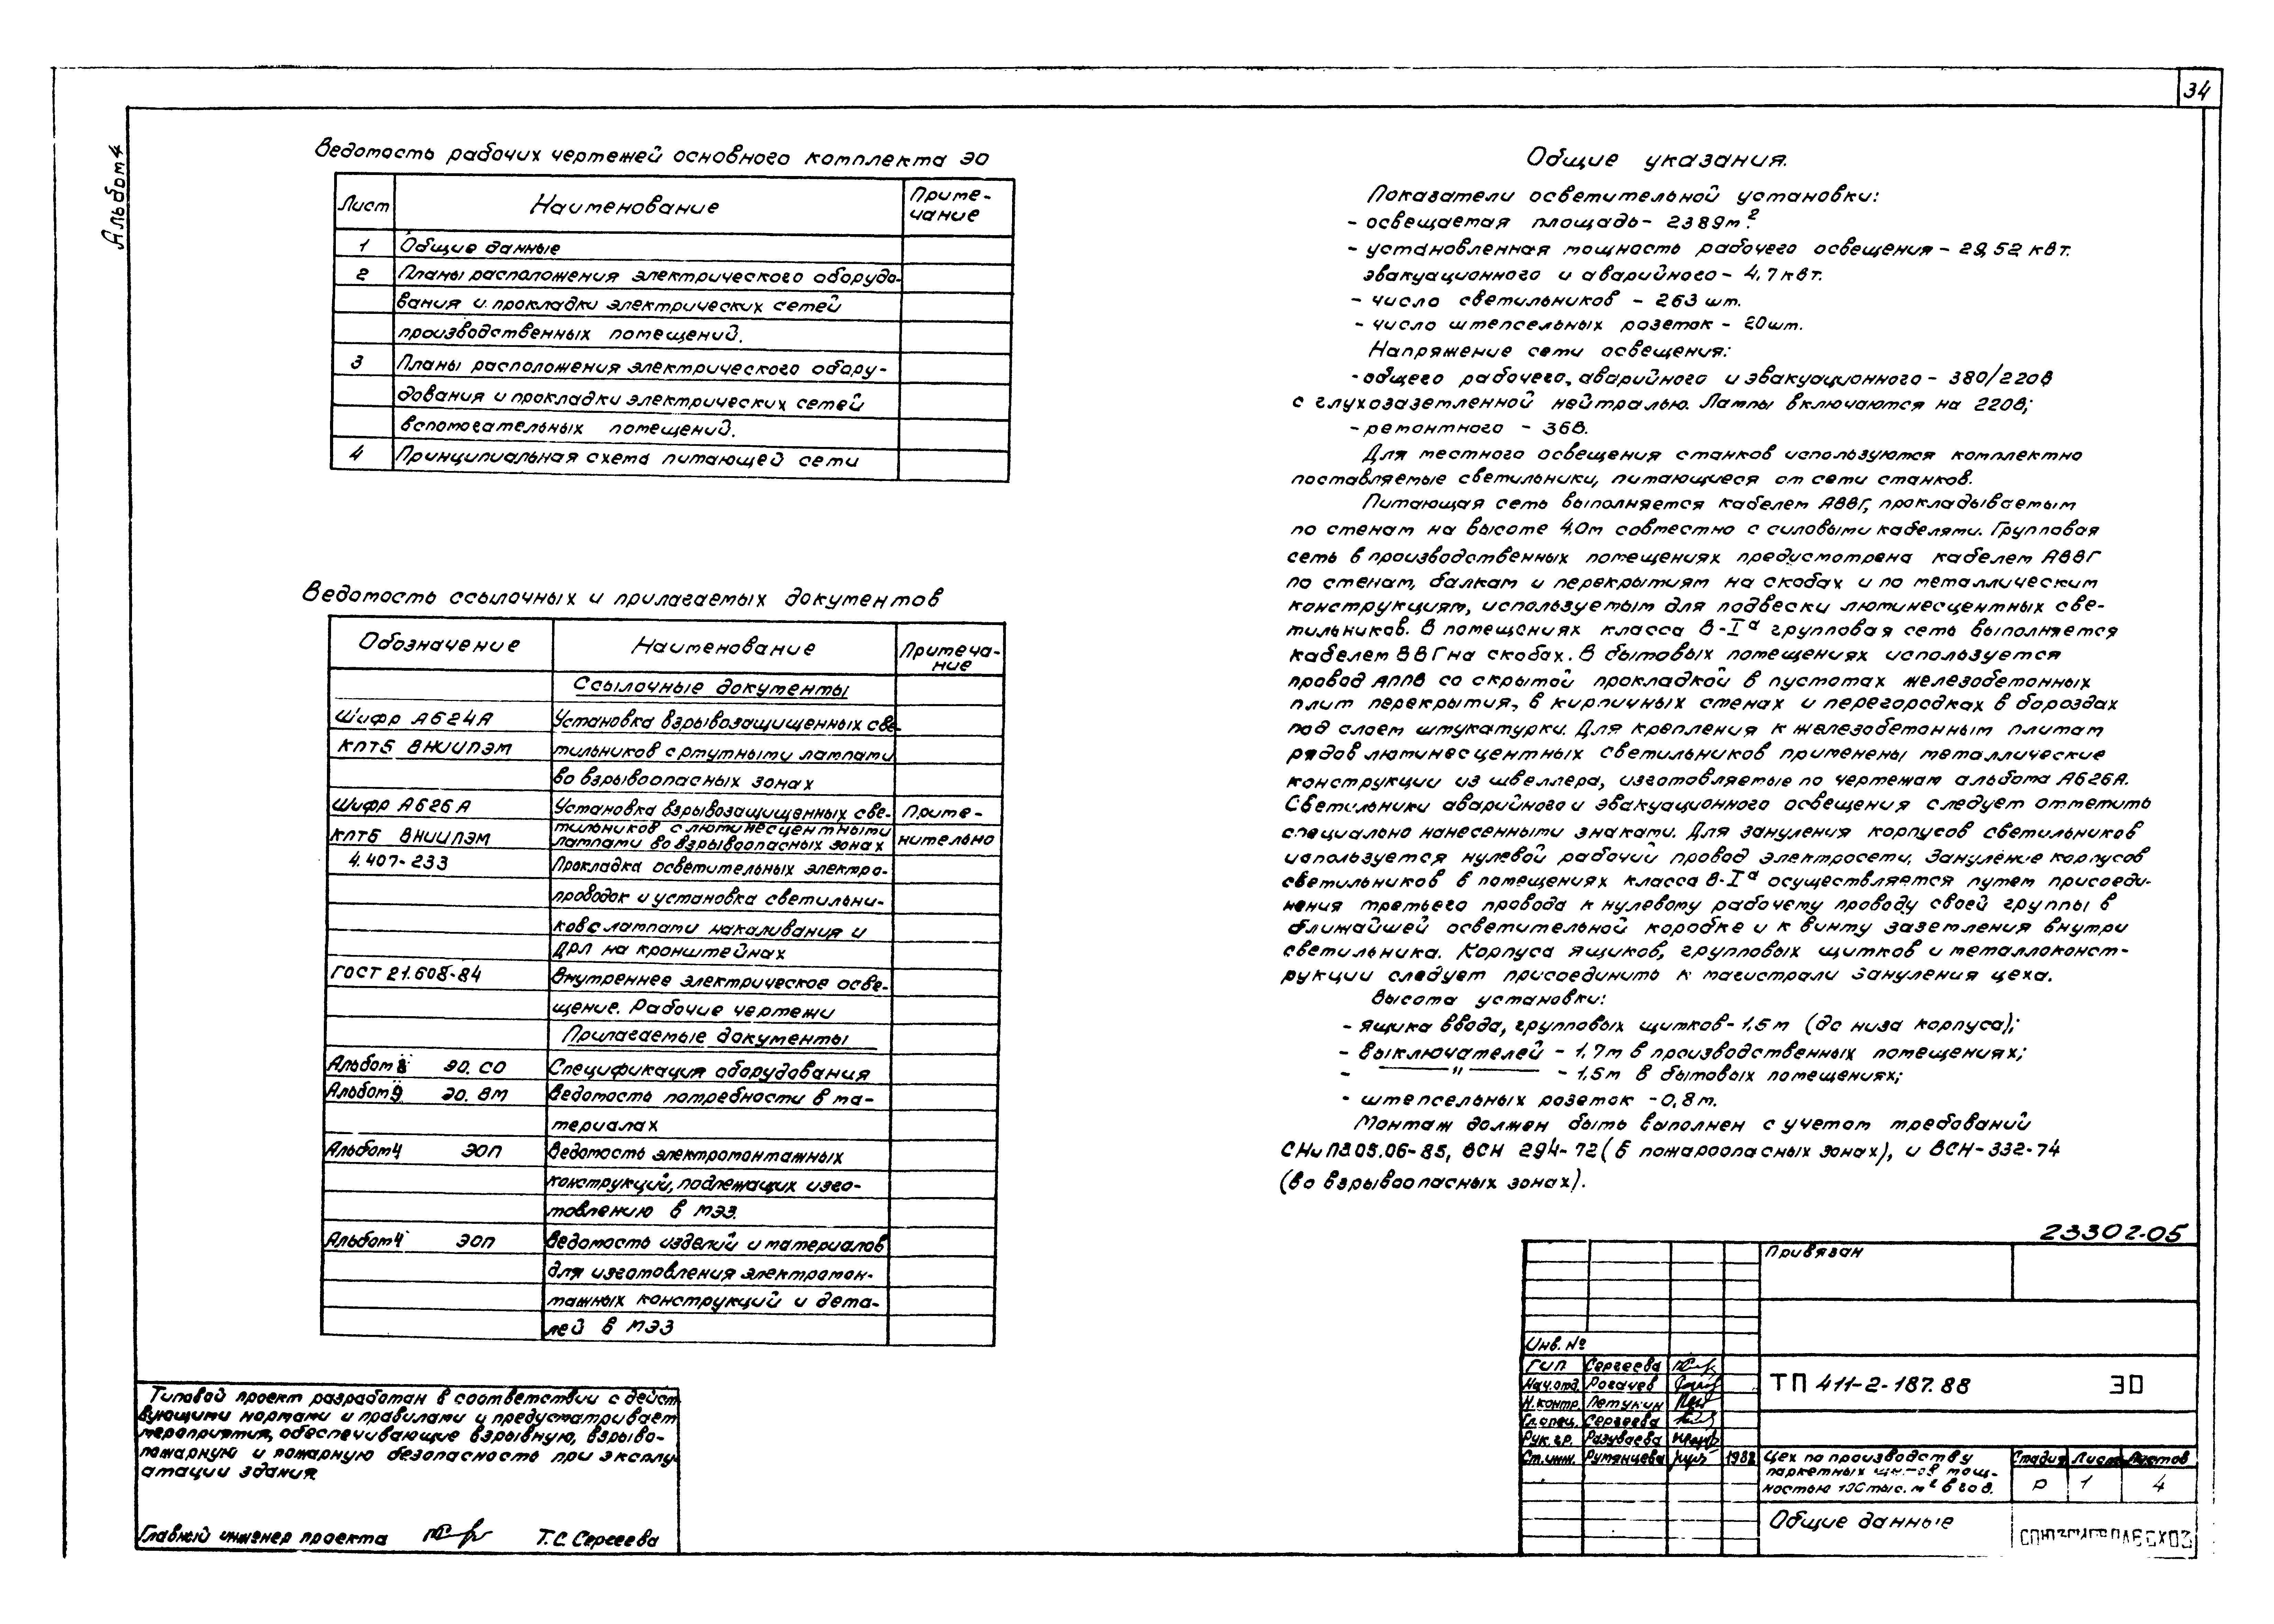 34
Альбом 4
Ведомость рабочих чертежей основного комплекта ЭО
Лист Наименование Приме-
чание
1 Общие данные
2 Планы расположения электрического оборудо-
вания и прокладки электрических сетей
производственных помещений.
3 Планы расположения электрического обору-
дования и прокладки электрических сетей
вспомогательных помещений.
4 Принципиальная схема питающей сети
Ведомость ссылочных и прилагаемых документов
Обозначение Наименование Примеча-
ние
Ссылочные документы
Шифр А624А Установка взрывозащищенных све-
КПТБ ВНИИПЭМ тильников с ртутными лампами
во взрывоопасных зонах
Шифр А626А Установка взрывозащищенных све- Приме-
КПТБ ВНИИПЭМ тильников с люминесцентными нительно
лампами во взрывоопасных зонах
4.407-233 Прокладка осветительных электро-
проводок и установка светильни-
ков с лампами накаливания и
ДРЛ на кронштейнах
ГОСТ 21.608-84 Внутреннее электрическое осве-
щение. Рабочие чертежи
Прилагаемые документы
Альбом 8 ЭО.СО Спецификация оборудования
Альбом 9 ЭО.ВМ Ведомость потребности в ма-
териалах
Альбом 4 ЭОП Ведомость электромонтажных
конструкций, подлежащих изго-
товлению в МЭЗ.
Альбом 4 ЭОП Ведомость изделий и материалов
для изготовления электромон-
тажных конструкций и дета-
лей в МЭЗ
Типовой проект разработан в соответствии с дейст
вующими нормами и правилами и предусматривает
мероприятия, обеспечивающие взрывную, взрыво-
пожарную и пожарную безопасность при эксплу
атации здания
Главный инженер проекта Т.С. Сергеева
Общие указания.
Показатели осветительной установки:
- освещаемая площадь - 2389м².
- установленная мощность рабочего освещения - 29,52 квт.
эвакуационного и аварийного - 4,7квт.
- число светильников - 263 шт.
- число штепсельных розеток - 20шт.
Напряжение сети освещения:
- общего рабочего, аварийного и эвакуационного - 380/220в
с глухозаземленной нейтралью. Лампы включаются на 220в;
- ремонтного - 36в.
Для местного освещения станков используются комплектно
поставляемые светильники, питающиеся от сети станков.
Питающая сеть выполняется кабелем АВВГ, прокладываемым
по стенам на высоте 4,0м совместно с силовыми кабелями. Групповая
сеть в производственных помещениях предусмотрена кабелем АВВГ
по стенам, балкам и перекрытиям на скобах и по металлическим
конструкциям, используемым для подвески люминесцентных све-
тильников. В помещениях класса В-Iа групповая сеть выполняется
кабелем ВВГ на скобах. В бытовых помещениях используется
провод АППВ со скрытой прокладкой в пустотах железобетонных
плит перекрытия, в кирпичных стенах и перегородках в бороздах
под слоем штукатурки. Для крепления к железобетонным плитам
рядов люминесцентных светильников применены металлические
конструкции из швеллера, изготовляемые по чертежам альбома А626А.
Светильники аварийного и эвакуационного освещения следует отметить
специально нанесенными знаками. Для зануления корпусов светильников
используется нулевой рабочий провод электросети. Зануление корпусов
светильников в помещениях класса В-Iа осуществляется путем присоеди-
нения третьего провода к нулевому рабочему проводу своей группы в
ближайшей осветительной коробке и к винту заземления внутри
светильника. Корпуса ящиков, групповых щитков и металлоконст-
рукции следует присоединить к магистрали зануления цеха.
Высота установки:
- ящика ввода, групповых щитков - 1,5м (до низа корпуса);
- выключателей - 1,7м в производственных помещениях;
- " - 1,5м в бытовых помещениях;
- штепсельных розеток - 0,8м.
Монтаж должен быть выполнен с учетом требований
СНиП3.05.06-85, ВСН 294-72 (в пожароопасных зонах), и ВСН-332-74
(во взрывоопасных зонах).
23302-05
Привязан
Инв. №
ГИП Сергеева
Нач.отд. Рогачев
Н.контр. Петухин
Гл.спец. Сергеева
Рук.гр. Разуваева
Ст.инж. Румянцева 1988
ТП 411-2-187.88 ЭО
Цех по производству
паркетных щитов мощ-
ностью 100тыс. м² в год.
Стадия Лист Листов
Р 1 4
Общие данные
СОЮЗГИПРОЛЕСХОЗ